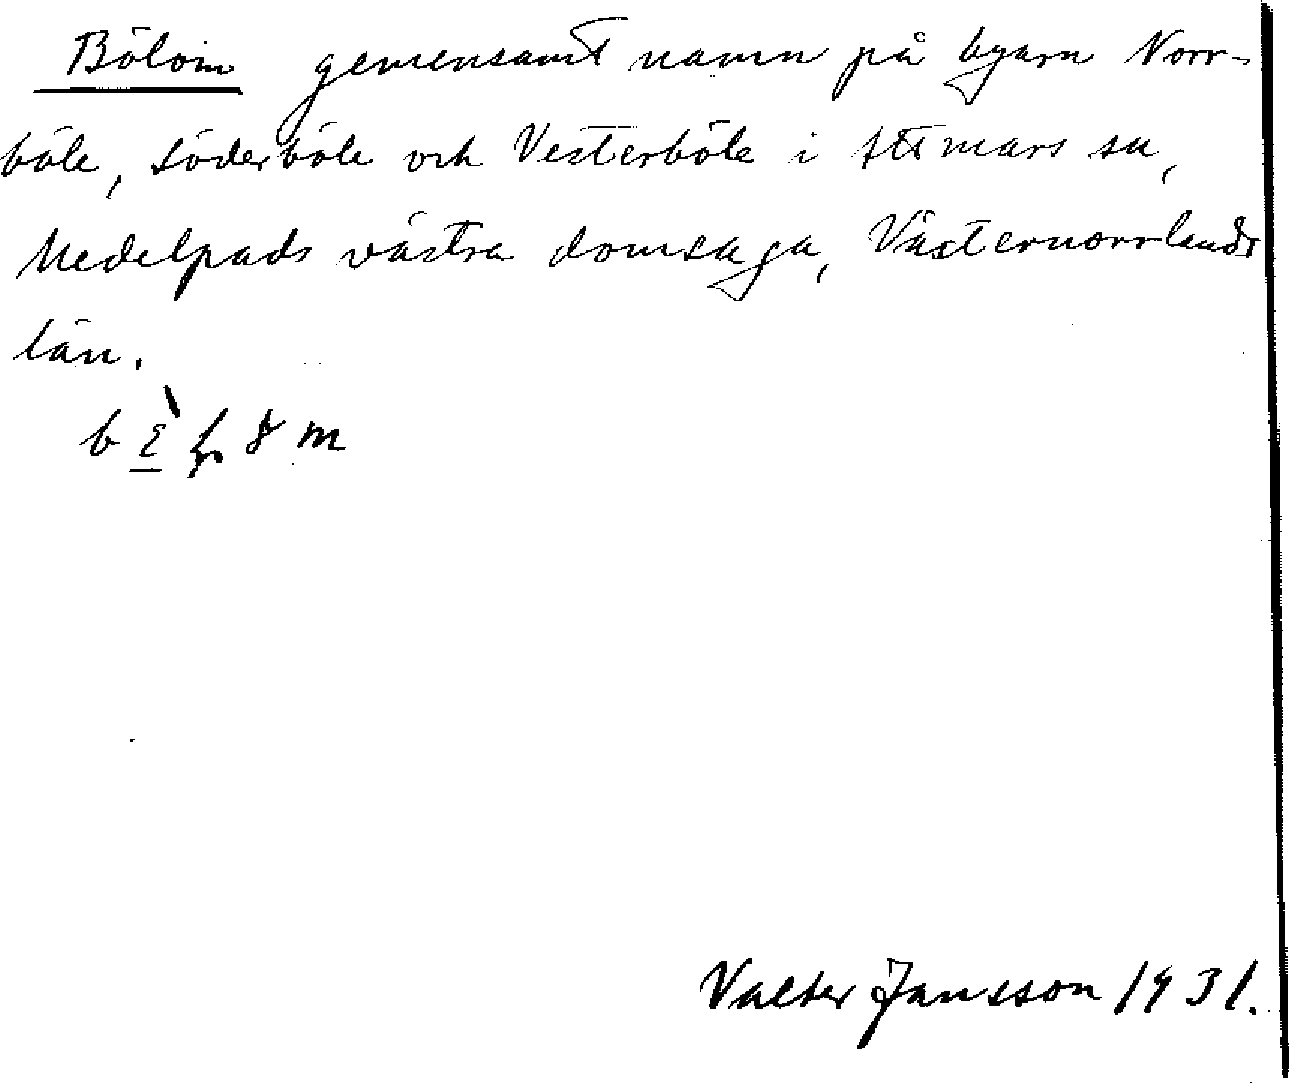 Bölom gemensamt namn på byarn Norr-
böle, Söderböle och Vesterböle i Attmars sn,
Medelpads västra domsaga, Västernorrlands
län.
Valter Jansson 1931.